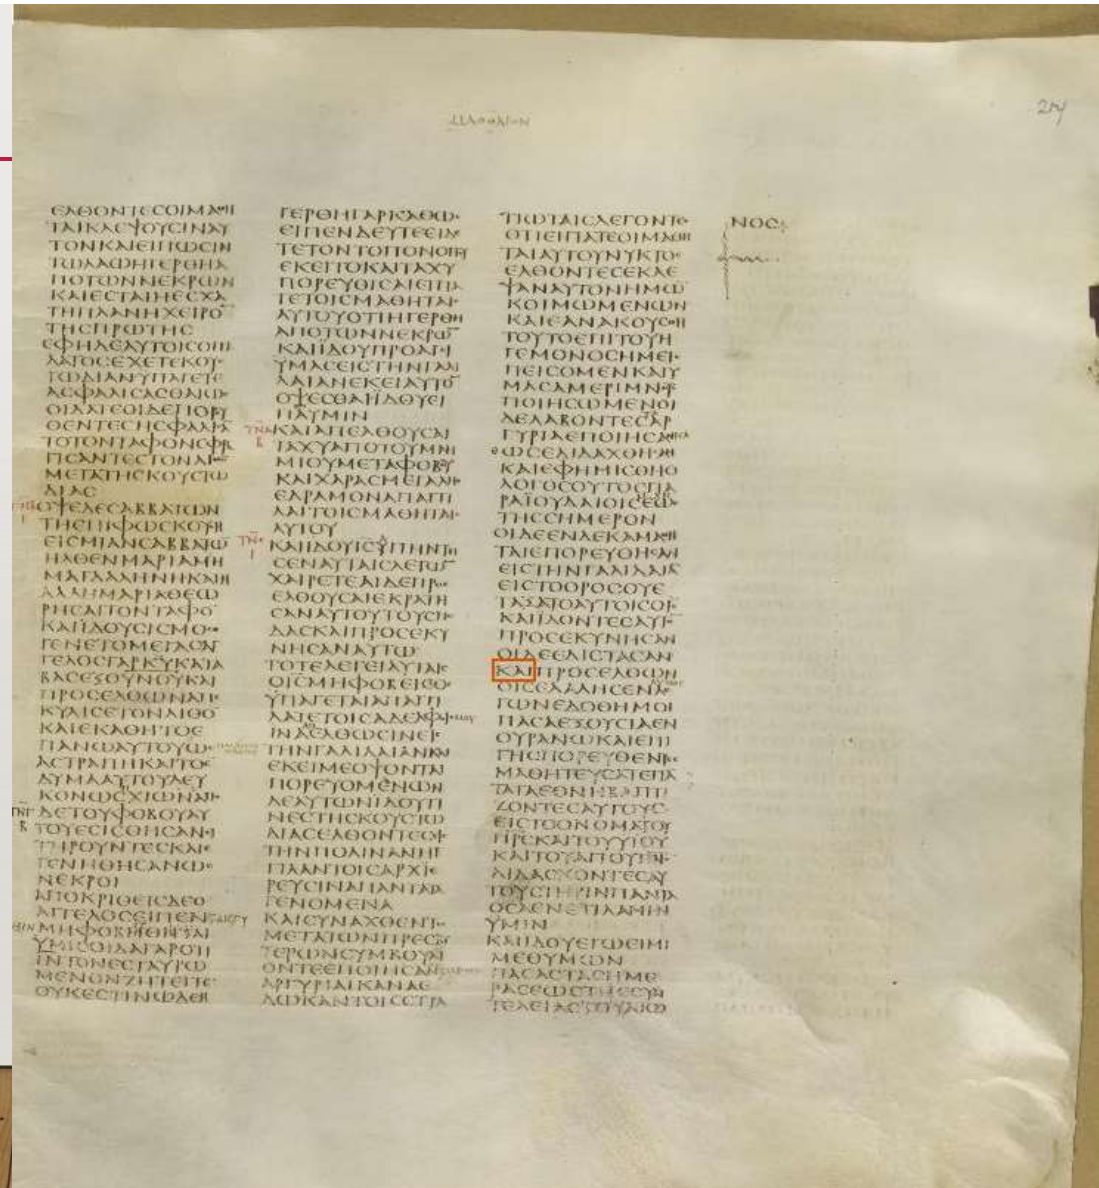 ΜΑΘΘΑΙΟΝ
ΕΛΘΟΝΤΕϹΟΙΜΑΘΗ
ΤΑΙΚΛΕΨΟΥϹΙΝΑΥ
ΤΟΝΚΑΙΕΙΠΩϹΙΝ
ΤΩΛΑΩΗΓΕΡΘΗΑ
ΠΟΤΩΝΝΕΚΡΩΝ
ΚΑΙΕϹΤΑΙΗΕϹΧΑ
ΤΗΠΛΑΝΗΧΕΙΡΟ
ΤΗϹΠΡΩΤΗϹ
ΕΦΗΔΕΑΥΤΟΙϹΟΠΙ
ΛΑΤΟϹΕΧΕΤΕΚΟΥ
ΤΩΔΙΑΝΥΠΑΓΕΤΕ
ΑϹΦΑΛΙϹΑϹΘΑΙΩ
ΟΙΔΑΤΕΟΙΔΕΠΟΡΕΥ
ΘΕΝΤΕϹΗϹΦΑΛΙ
ΤΟΤΟΝΤΑΦΟΝϹΦΡΑ
ΓΙϹΑΝΤΕϹΤΟΝΛΙ
ΜΕΤΑΤΗϹΚΟΥϹΤΩ
ΔΙΑϹ
ΟΨΕΔΕϹΑΒΒΑΤΩΝ
ΤΗΕΠΙΦΩϹΚΟΥϹΗ
ΕΙϹΜΙΑΝϹΑΒΒΑΤΩ
ΗΛΘΕΝΜΑΡΙΑΜΗ
ΜΑΓΔΑΛΗΝΗΚΑΙΗ
ΑΛΛΗΜΑΡΙΑΘΕΩ
ΡΗϹΑΙΤΟΝΤΑΦΟ
ΚΑΙΙΔΟΥϹΙϹΜΟϹ
ΓΕΝΕΤΟΜΕΓΑϹΑΓ
ΓΕΛΟϹΓΑΡΚΥΚΑΤΑ
ΒΑϹΕΞΟΥΝΟΥΚΑΙ
ΠΡΟϹΕΛΘΩΝΑΠΕ
ΚΥΛΙϹΕΤΟΝΛΙΘΟ
ΚΑΙΕΚΑΘΗΤΟΕ
ΠΑΝΩΑΥΤΟΥΩϹ
ΑϹΤΡΑΠΗΚΑΙΤΟΕ
ΔΥΜΑΑΥΤΟΥΛΕΥ
ΚΟΝΩϹΧΙΩΝΑΠΟ
ΔΕΤΟΥΦΟΒΟΥΑΥ
ΤΟΥΕϹΙϹΘΗϹΑΝΟΙ
ΤΗΡΟΥΝΤΕϹΚΑΙΕ
ΓΕΝΗΘΗϹΑΝΩϹ
ΝΕΚΡΟΙ
ΑΠΟΚΡΙΘΕΙϹΔΕΟ
ΑΓΓΕΛΟϹΕΙΠΕΝ
ΜΗΦΟΒΗΘΗΤΑΙ
ΥΜΙϹΟΙΔΑΓΑΡΟΤΙ
ΙΝΤΟΝΕϹΤΑΥΡΩ
ΜΕΝΟΝΖΗΤΕΙΤΕ
ΟΥΚΕϹΤΙΝΩΔΕΗ
ΓΕΡΘΗΓΑΡΚΑΘΩϹ
ΕΙΠΕΝΔΕΥΤΕΕΙΔΕ
ΤΕΤΟΝΤΟΠΟΝΟΠΟΥ
ΕΚΕΙΤΟΚΑΙΤΑΧΥ
ΠΟΡΕΥΘΙϹΑΙΕΙΠΑ
ΤΕΤΟΙϹΜΑΘΗΤΑΙϹ
ΑΥΤΟΥΟΤΙΗΓΕΡΘΗ
ΑΠΟΤΩΝΝΕΚΡΩ
ΚΑΙΙΔΟΥΠΡΟΑΓΙ
ΥΜΑϹΕΙϹΤΗΝΓΑΛΙ
ΛΑΙΑΝΕΚΕΙΑΥΤΟ
ΟΨΕϹΘΑΙΙΔΟΥΕΙ
ΠΑΥΜΙΝ
ΚΑΙΑΠΕΛΘΟΥϹΑΙ
ΤΑΧΥΑΠΟΤΟΥΜΝΗ
ΜΙΟΥΜΕΤΑΦΟΒΟΥ
ΚΑΙΧΑΡΑϹΜΕΓΑΛΗϹ
ΕΔΡΑΜΟΝΑΠΑΓΓΙ
ΛΑΙΤΟΙϹΜΑΘΗΤΑΙϹ
ΑΥΤΟΥ
ΚΑΙΙΔΟΥΙϹΥΠΗΝΤΗ
ϹΕΝΑΥΤΑΙϹΛΕΓΩ
ΧΑΙΡΕΤΕΑΙΔΕΠΡΟϹ
ΕΛΘΟΥϹΑΙΕΚΡΑΤΗ
ϹΑΝΑΥΤΟΥΤΟΥϹΠΟ
ΔΑϹΚΑΙΠΡΟϹΕΚΥ
ΝΗϹΑΝΑΥΤΩ
ΤΟΤΕΛΕΓΕΙΑΥΤΑΙϹ
ΟΙϹΜΗΦΟΒΕΙϹΘΕ
ΥΠΑΓΕΤΑΙΑΠΑΓΓΙ
ΛΑΤΕΤΟΙϹΑΔΕΛΦΟΙϹ
ΙΝΑΕΛΘΩϹΙΝΕΙϹ
ΤΗΝΓΑΛΙΛΑΙΑΝΚΑΙ
ΕΚΕΙΜΕΟΨΟΝΤΑΙ
ΠΟΡΕΥΟΜΕΝΩΝ
ΔΕΑΥΤΩΝΙΔΟΥΤΙ
ΝΕϹΤΗϹΚΟΥϹΤΩ
ΔΙΑϹΕΛΘΟΝΤΕϹΕΙϹ
ΤΗΝΠΟΛΙΝΑΝΗΓ
ΓΙΛΑΝΤΟΙϹΑΡΧΙΕ
ΡΕΥϹΙΝΑΠΑΝΤΑΤΑ
ΓΕΝΟΜΕΝΑ
ΚΑΙϹΥΝΑΧΘΕΝΤΕϹ
ΜΕΤΑΤΩΝΠΡΕϹΒΥ
ΤΕΡΩΝϹΥΜΒΟΥΛΙ
ΟΝΤΕΕΠΟΙΗϹΑΝ
ΑΡΓΥΡΙΑΙΚΑΝΑΕ
ΔΩΚΑΝΤΟΙϹϹΤΡΑ
ΤΙΩΤΑΙϹΛΕΓΟΝΤΕϹ
ΟΤΙΕΙΠΑΤΕΟΙΜΑΘΗ
ΤΑΙΑΥΤΟΥΝΥΚΤΟϹ
ΕΛΘΟΝΤΕϹΕΚΛΕ
ΨΑΝΑΥΤΟΝΗΜΩ
ΚΟΙΜΩΜΕΝΩΝ
ΚΑΙΕΑΝΑΚΟΥϹΘΗ
ΤΟΥΤΟΕΠΙΤΟΥΗ
ΓΕΜΟΝΟϹΗΜΕΙϹ
ΠΕΙϹΟΜΕΝΚΑΙΥ
ΜΑϹΑΜΕΡΙΜΝΟΥϹ
ΠΟΙΗϹΩΜΕΝΟΙ
ΔΕΛΑΒΟΝΤΕϹΑΡ
ΓΥΡΙΑΕΠΟΙΗϹΑΝ
ΩϹΕΔΙΔΑΧΘΗϹΑΝ
ΚΑΙΕΦΗΜΙϹΘΗΟ
ΛΟΓΟϹΟΥΤΟϹΠΑ
ΡΑΙΟΥΔΑΙΟΙϹΕΩϹ
ΤΗϹϹΗΜΕΡΟΝ
ΟΙΔΕΕΝΔΕΚΑΜΑΘΗ
ΤΑΙΕΠΟΡΕΥΘΗϹΑΝ
ΕΙϹΤΗΝΓΑΛΙΛΑΙΑ
ΕΙϹΤΟΟΡΟϹΟΥΕ
ΤΑΞΑΤΟΑΥΤΟΙϹΟΙϹ
ΚΑΙΙΔΟΝΤΕϹΑΥΤ
ΠΡΟϹΕΚΥΝΗϹΑΝ
ΟΙΔΕΕΔΙϹΤΑϹΑΝ
ΚΑΙΠΡΟϹΕΛΘΩΝ
ΟΙϹΕΛΑΛΗϹΕΝ
ΓΩΝΕΔΟΘΗΜΟΙ
ΠΑϹΑΕΞΟΥϹΙΑΕΝ
ΟΥΡΑΝΩΚΑΙΕΠΙ
ΓΗϹΠΟΡΕΥΘΕΝΤΕϹ
ΜΑΘΗΤΕΥϹΑΤΕΠΑ
ΤΑΤΑΕΘΝΗΒΑΠΤΙ
ΖΟΝΤΕϹΑΥΤΟΥϹ
ΕΙϹΤΟΟΝΟΜΑΤΟΥ
ΠΡϹΚΑΙΤΟΥΥΙΟΥ
ΚΑΙΤΟΥΑΓΙΟΥΠΝϹ
ΔΙΔΑϹΚΟΝΤΕϹΑΥ
ΤΟΥϹΤΗΡΙΝΠΑΝΤΑ
ΟϹΑΕΝΕΤΙΛΑΜΗΝ
ΥΜΙΝ
ΚΑΙΙΔΟΥΕΓΩΕΙΜΙ
ΜΕΘΥΜΩΝ
ΠΑϹΑϹΤΑϹΗΜΕ
ΡΑϹΕΩϹΤΗϹϹΥΝ
ΤΕΛΕΙΑϹΤΟΥΑΙΩ
ΝΟϹ